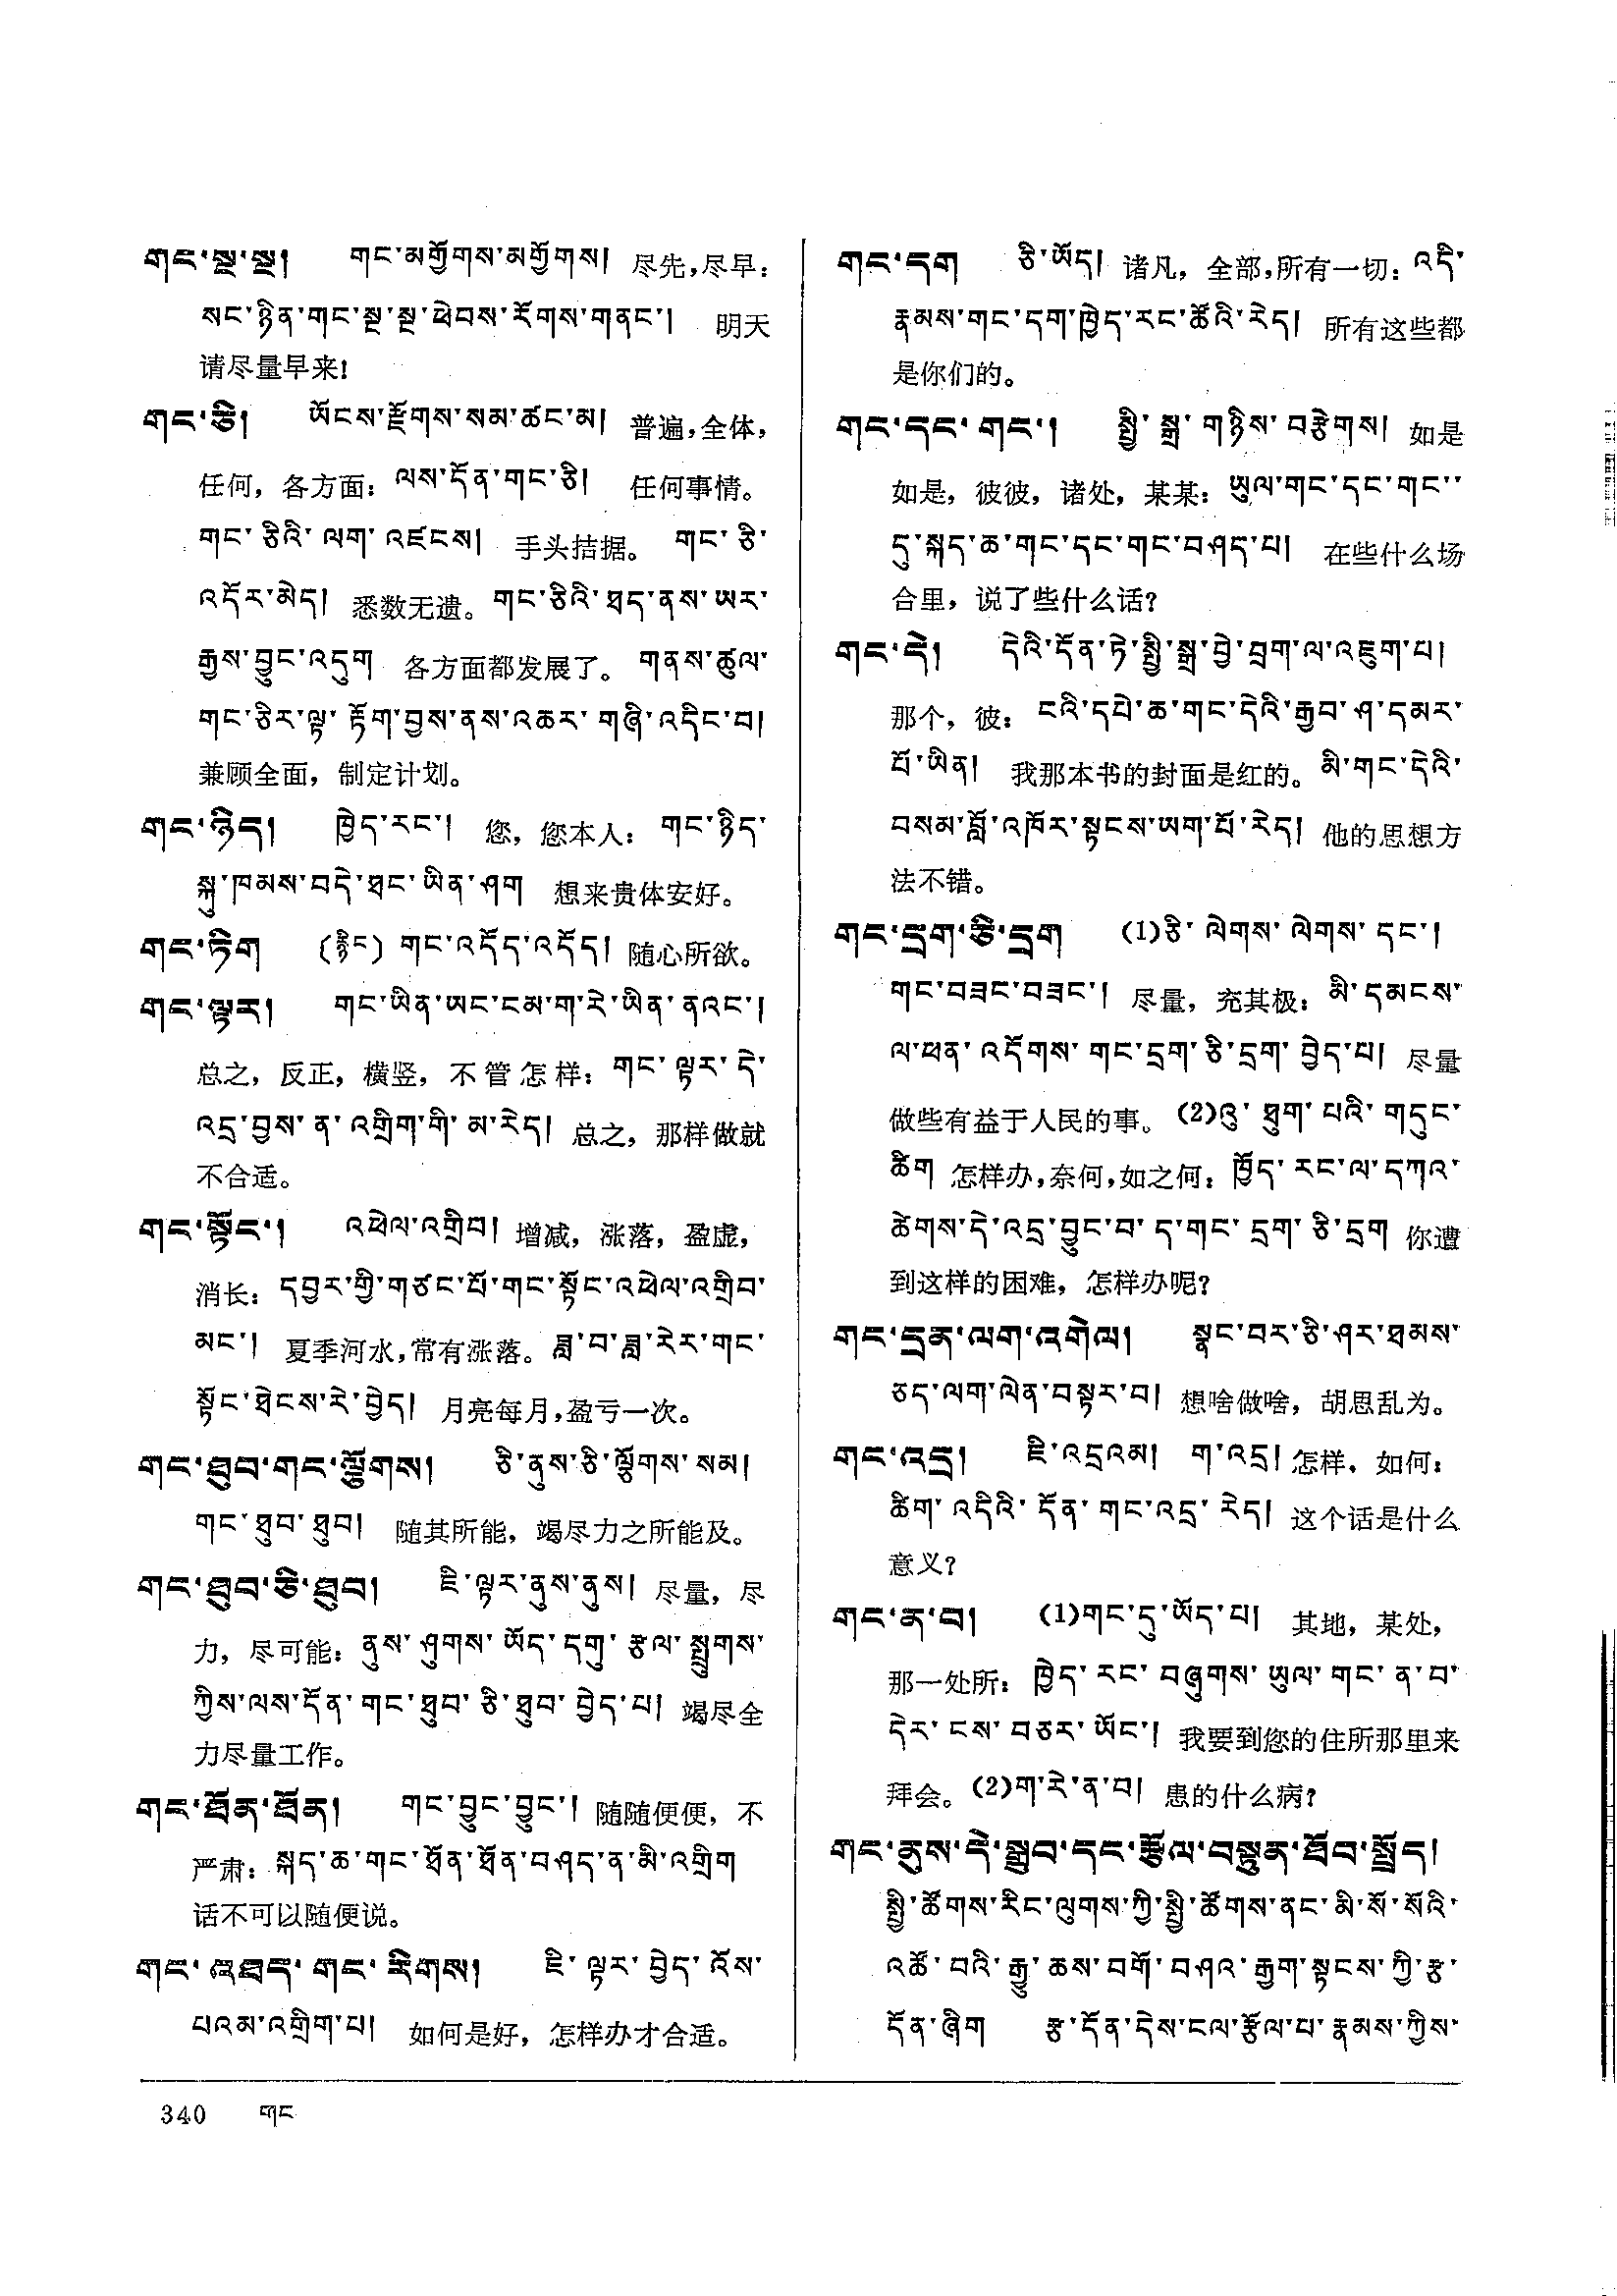 གང་སྔ་སྔ། གང་མགྱོགས་མགྱོགས། 尽先,尽早:
སང་ཉིན་གང་སྔ་སྔ་ཕེབས་རོགས་གནང་། 明天
请尽量早来!
གང་ཅི། ཡོངས་རྫོགས་སམ་ཚང་མ། 普遍,全体,
任何, 各方面: ལས་དོན་གང་ཅི། 任何事情。
གང་ཅིའི་ལག་འཛངས། 手头拮据。 གང་ཅི་
འདོར་མེད། 悉数无遗。གང་ཅིའི་ཐད་ནས་ཡར་
རྒྱས་བྱུང་འདུག 各方面都发展了。 གནས་ཚུལ་
གང་ཅིར་ལྟ་རྟོག་བྱས་ནས་འཆར་གཞི་འདིང་བ།
兼顾全面, 制定计划。
གང་ཉིད། ཁྱེད་རང་། 您, 您本人: གང་ཉིད་
སྐུ་ཁམས་བདེ་ཐང་ཡིན་ཤག 想来贵体安好。
གང་ཏིག (རྙིང) གང་འདོད་འདོད། 随心所欲。
གང་ལྟར། གང་ཡིན་ཨང་ངམ་ག་རེ་ཡིན་ནའང་།
总之, 反正, 横竖, 不管怎样: གང་ལྟར་དེ་
འདྲ་བྱས་ན་འགྲིག་གི་མ་རེད། 总之, 那样做就
不合适。
གང་སྟོང་། འཕེལ་འགྲིབ། 增减, 涨落, 盈虚,
消长: དབྱར་གྱི་གཙང་པོ་གང་སྟོང་འཕེལ་འགྲིབ་
མང་། 夏季河水,常有涨落。ཟླ་བ་ཟླ་རེར་གང་
སྟོང་ཐེངས་རེ་བྱེད། 月亮每月,盈亏一次。
གང་ཐུབ་གང་ལྕོགས། ཅི་ནུས་ཅི་ལྕོགས་སམ།
གང་ཐུབ་ཐུབ། 随其所能, 竭尽力之所能及。
གང་ཐུབ་ཅི་ཐུབ། ཇི་ལྟར་ནུས་ནུས། 尽量, 尽
力, 尽可能: ནུས་ཤུགས་ཡོད་དགུ་རྩལ་སྤྲུགས་
ཀྱིས་ལས་དོན་གང་ཐུབ་ཅི་ཐུབ་བྱེད་པ། 竭尽全
力尽量工作。
གང་ཐོན་ཐོན། གང་བྱུང་བྱུང་། 随随便便, 不
严肃: སྐད་ཆ་གང་ཐོན་ཐོན་བཤད་ན་མི་འགྲིག
话不可以随便说。
གང་འཐད་གང་རིགས། ཇི་ལྟར་བྱེད་འོས་
པའམ་འགྲིག་པ། 如何是好, 怎样办才合适。
གང་དག ཅི་ཡོད། 诸凡, 全部,所有一切: འདི་
རྣམས་གང་དག་ཁྱེད་རང་ཚོའི་རེད། 所有这些都
是你们的。
གང་དང་གང་། སྤྱི་སྒྲ་གཉིས་བརྩེགས། 如是
如是, 彼彼, 诸处, 某某: ཡུལ་གང་དང་གང་་
དུ་སྐད་ཆ་གང་དང་གང་བཤད་པ། 在些什么场
合里, 说了些什么话?
གང་དེ། དེའི་དོན་ཏེ་སྤྱི་སྒྲ་བྱེ་བྲག་ལ་འཇུག་པ།
那个, 彼: ངའི་དཔེ་ཆ་གང་དེའི་རྒྱབ་ཤ་དམར་
པོ་ཡིན། 我那本书的封面是红的。མི་གང་དེའི་
བསམ་བློ་འཁོར་སྟངས་ཡག་པོ་རེད། 他的思想方
法不错。
གང་དྲག་ཅི་དྲག (1)ཅི་ལེགས་ལེགས་དང་།
གང་བཟང་བཟང་། 尽量, 充其极: མི་དམངས་
ལ་ཕན་འདོགས་གང་དྲག་ཅི་དྲག་བྱེད་པ། 尽量
做些有益于人民的事。(2)འུ་ཐུག་པའི་གདུང་
ཚིག 怎样办,奈何,如之何: ཁྱོད་རང་ལ་དཀའ་
ཚེགས་དེ་འདྲ་བྱུང་བ་ད་གང་དྲག་ཅི་དྲག 你遭
到这样的困难, 怎样办呢?
གང་དྲན་ལག་འགེལ། སྣང་བར་ཅི་ཤར་ཐམས་
ཅད་ལག་ལེན་བསྟར་བ། 想啥做啥, 胡思乱为。
གང་འདྲ། ཇི་འདྲའམ། ག་འདྲ། 怎样, 如何:
ཚིག་འདིའི་དོན་གང་འདྲ་རེད། 这个话是什么
意义?
གང་ན་བ། (1)གང་དུ་ཡོད་པ། 其地, 某处,
那一处所: ཁྱེད་རང་བཞུགས་ཡུལ་གང་ན་བ་
དེར་ངས་བཅར་ཡོང་། 我要到您的住所那里来
拜会。(2)ག་རེ་ན་བ། 患的什么病?
གང་ནུས་དེ་སྒྲུབ་དང་རྩོལ་བསྟུན་ཐོབ་སྤྲོད།
སྤྱི་ཚོགས་རིང་ལུགས་ཀྱི་སྤྱི་ཚོགས་ནང་མི་སོ་སོའི་
འཚོ་བའི་རྒྱུ་ཆས་བགོ་བཤའ་རྒྱག་སྟངས་ཀྱི་རྩ་
དོན་ཞིག རྩ་དོན་དེས་ངལ་རྩོལ་པ་རྣམས་ཀྱིས་
340 གང